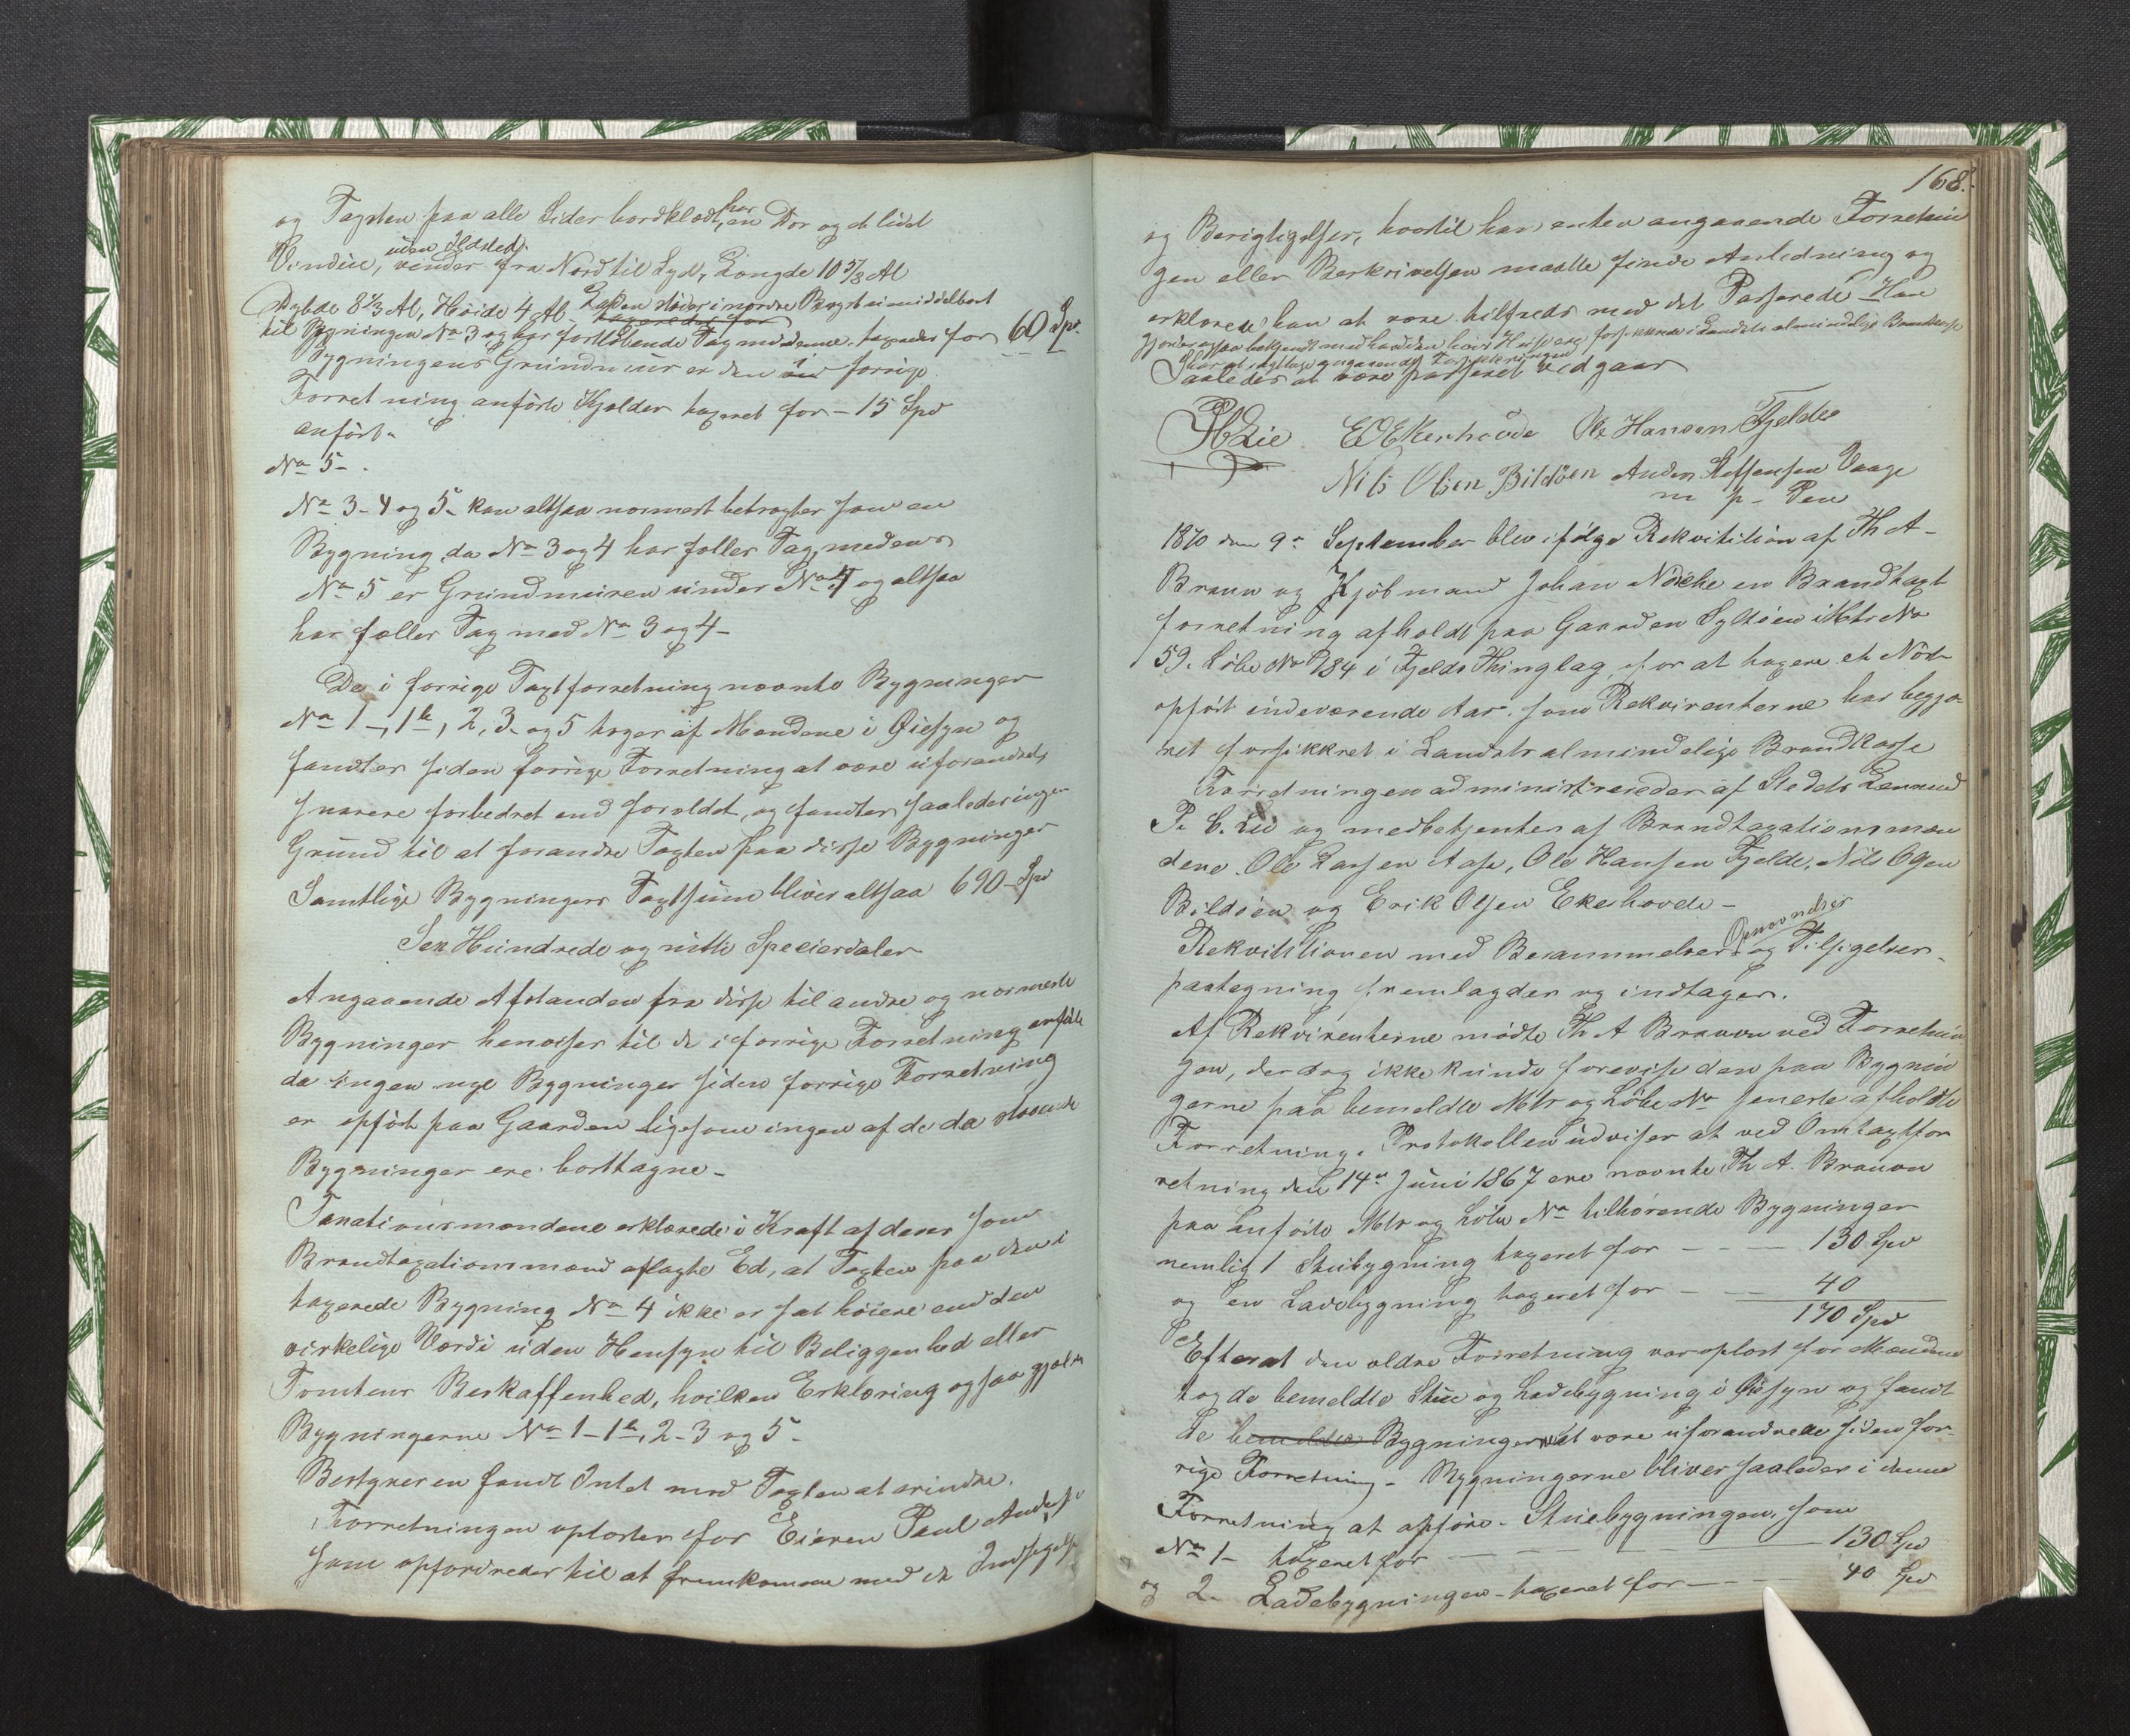 og Tagsten paa alle Sider bordklædt, har en Dør og et lidet
Vindue, uden Ildsted, vender fra Nord til Syd, Længde 10 5/8 Al
Dybde 8 1/3 Al, Høide 4 Al. Laden støder i nordre Bygst umiddelbart
til Bygningen No 3 og har fortløbende Tag med denne, taxeredes for 60 Spd.
Bygningens Grundmuur er den i forrige
Forretning anførte Kjelder taxeret for – 15 Spd
anført
No 5 –
No 3 – 4 og 5 – kan altsaa nærmest betragtes som en
Bygning da No 3 og 4 har fælles Tag, medens
No 5 er Grundmuren under No 4 og altsaa
har fælles Tag med No 3 og 4 –
De i forrige Taxtforretning nævnte Bygninger
No 1 –, 1b, 2, 3 – og 5 toges af Mændene i Øiesyn og
fandtes siden forrige Forretning at være uforandret,
snarere forbedret end forældet, og fandtes saaledes ingen
Grund til at forandre Taxten paa disse Bygninger
Samtlige Bygningers Taxtsum bliver altsaa 690 – Spd
Sex Hundrede og nitti Speciedaler
Angaaende Afstanden fra disse til andre og nærmeste
Bygninger henvises til de i forrige Forretning anførte
da ingen nye Bygninger siden forrige Forretning
er opført paa Gaarden ligesom ingen af de da staaende
Bygninger ere borttagne –
Taxationsmændene erklærede i Kraft af deres som
Brandtaxationsmænd aflagte Ed, at Taxten paa den i
taxerede Bygning No 4 ikke er sat høiere end den
virkelige Værdi uden Hensyn til Beliggenhed eller
Tomtens Beskaffenhed, hvilken Erklæring ogsaa gjælder
Bygningerne No 1 – 1b, 2 – 3 og 5 –
Bestyreren fandt Intet mod Taxten at erindre.
Forretningen oplæstes for Eieren Paul
som opfordredes til at fremkomme med de Indsigelser
168.
og Berigtigelser, hvortil han enten angaaende Forretnin
gen eller Beskrivelsen maatte finde Anledning og
erklærede han at være tilfreds med det Passerede – Han
gjordes ogsaa bekjendt med hvad den hvis Huse ere forsikkrede i Landets almindelige Brandkasse
har at iagttage angaaende Forsikkringen
Saaledes at være passeret vedgaar
PCLie EOEkerhovde Ole Hansen Fjelde
Nils Olsen Bildöen Anders Steffensen Vaage
m p – Pen
1870 den 9de September blev ifølge Rekvisition af Th A –
Braun og Kjøbmand Johan en Brandtaxt
forretning afholdt paa Gaarden Syltöen Matr No
59. Löbe No 184 i Fjelds Thinglag, for at taxere et Nöst
opført indeværende Aar, som Rekvirenterne har begjæ-
ret forsikkret i Landets almindelige Brandkasse
Forretningen administreredes af Stedets Lænsmand
P. C. Lie og medbetjentes af Brandtaxationsmæn
dene. Ole Larsen Aase, Ole Hansen Fjelde, Nils Olsen
Bildöen og Erik Olsen Ekerhovde –
Rekvisitionen med Berammelses Opnævnelses og Tilsigelses
paategning fremlagdes og indtages.
Af Rekvirenterne mødte Th A Braun ved Forretnin
gen, der dog ikke kunde forevise den paa Bygnin
gerne paa bemeldte Matr og Löbe No seneste afholdte
Forretning. Protokollen udviser at ved Omtaxtfor
retning den 14de Juni 1867 ere nævnte Th A. Braun
paa anførte Matr og Löbe No tilhørende Bygninger
nemlig 1 Stuebygning taxeret for – – – 130 Spd
og en Ladebygning taxeret for – – 40
170 Spd
Efterat den ældre Forretning var oplæst for Mændene
tog de bemeldte Stue og Ladebygning i Øiesyn og fandt
de bemeldte Bygningerne at være uforandrede siden for-
rige Forretning – Bygningerne bliver saaledes i denne
Forretning at opføre – Stuebygningen, som
No 1 – taxeret for – – – – 130 Spd
og 2 – Ladebygningen – taxeret for – – – 40 Spd